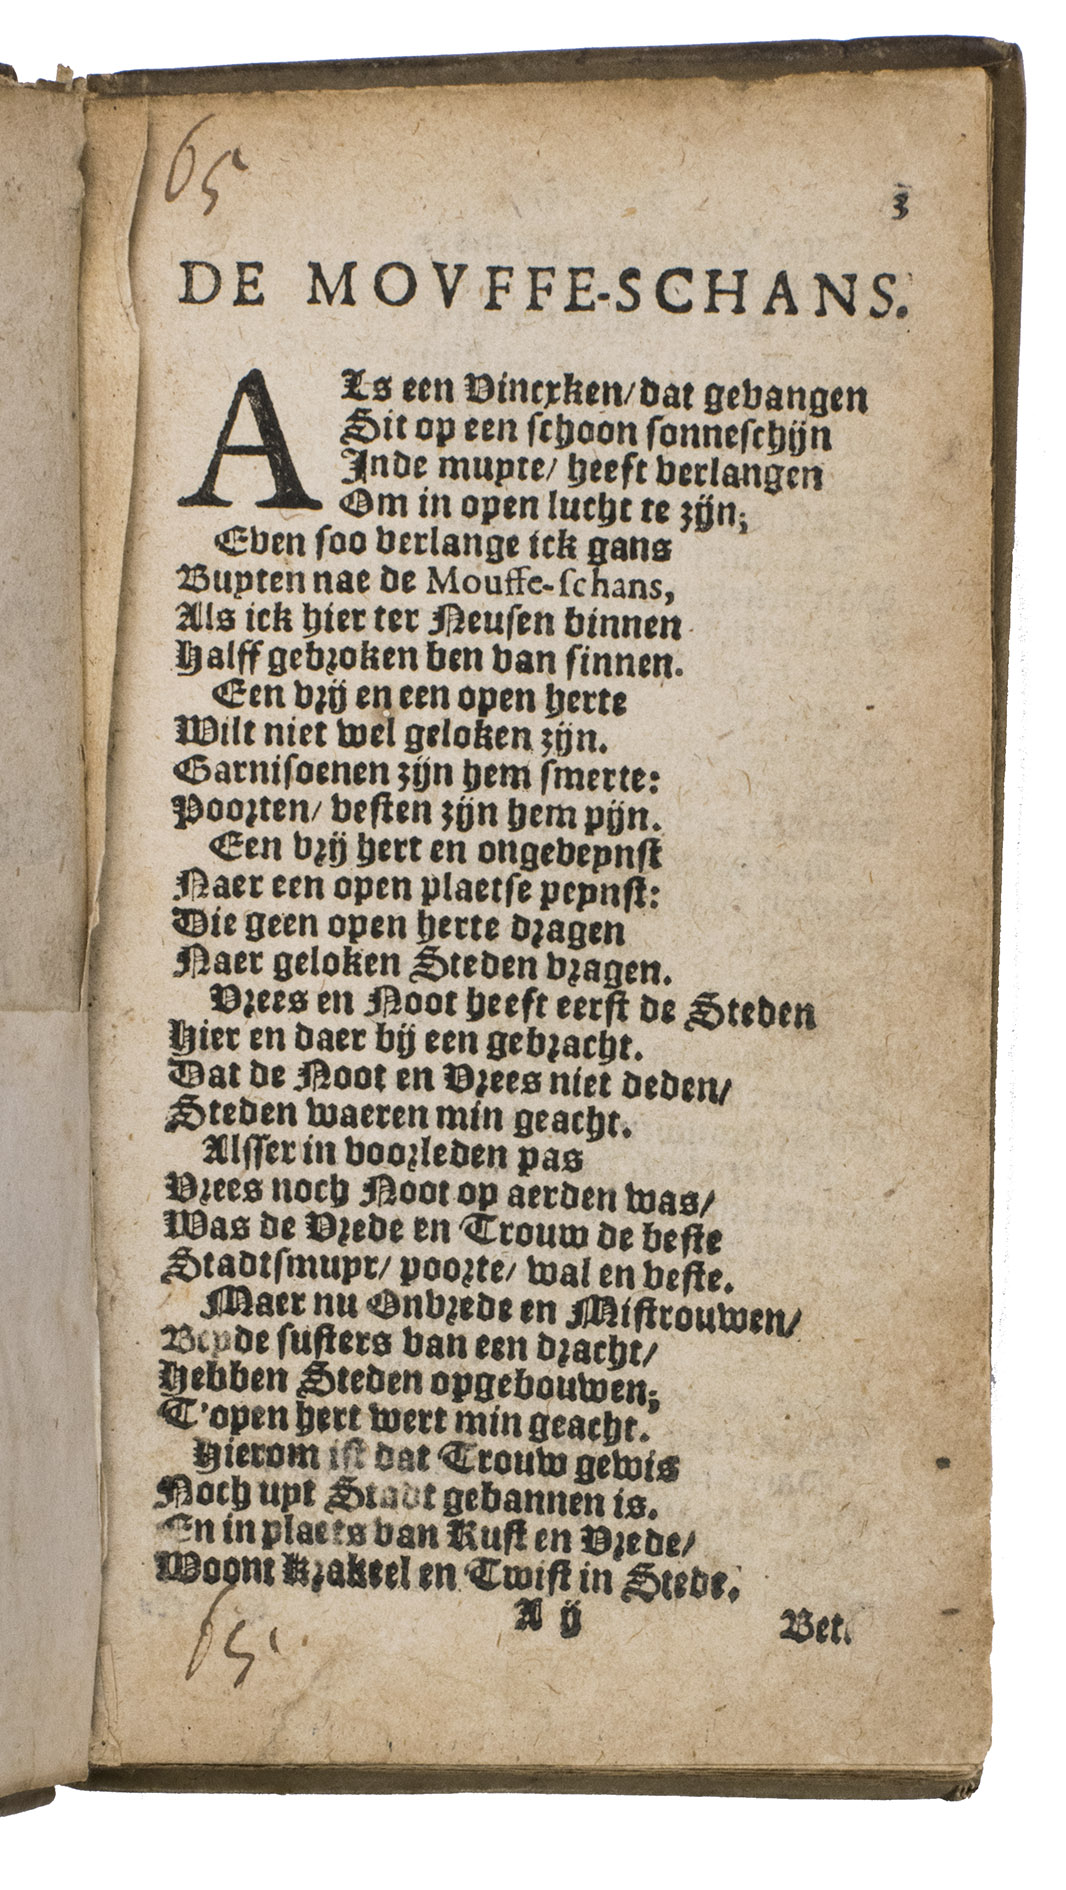 65
3
DE MOVFFE-SCHANS.
ALs een Vincxken/ dat gevangen
Sit op een schoon sonneschijn
Inde muyte/ heeft verlangen
Om in open lucht te zijn;
Even soo verlange ick gans
Buyten nae de Mouffe-schans,
Als ick hier ter Neusen binnen
Halff gebroken ben van sinnen.
Een vrij en een open herte
Wilt niet wel geloken zijn.
Garnisoenen zijn hem smerte:
Poorten/ vesten zijn hem pijn.
Een vrij hert en ongeveynst
Naer een open plaetse peynst:
Die geen open herte dragen
Naer geloken Steden vragen.
Vrees en Noot heeft eerst de Steden
Hier en daer bij een gebracht.
Dat de Noot en Vrees niet deden/
Steden waeren min geacht.
Alsser in voorleden pas
Vrees noch Noot op aerden was/
Was de Vrede en Trouw de beste
Stadtsmuyr/ poorte/ wal en veste.
Maer nu Onvrede en Mistrouwen/
Beyde susters van een dracht/
Hebben Steden opgebouwen;
T'open hert wert min geacht.
Hierom ist dat Trouw gewis
Noch uyt Stadt gebannen is.
En in plaets van Rust en Vrede/
Woont Krakeel en Twist in Stede.
A ij
Bet.
65.